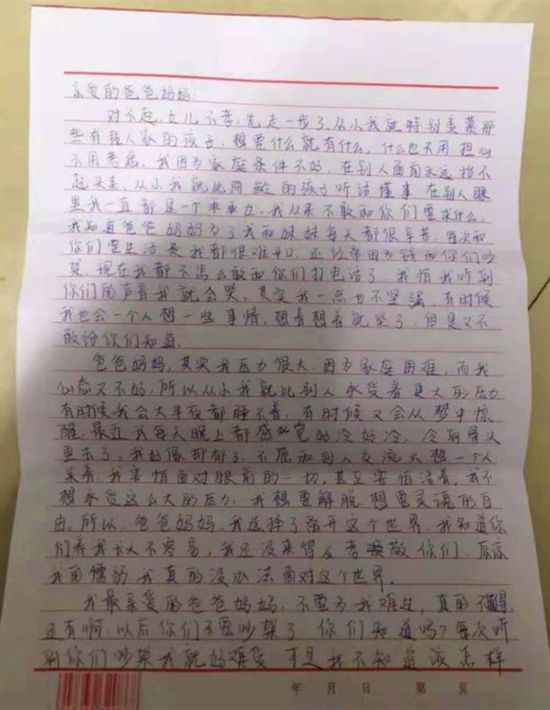 亲爱的爸爸妈妈:
对不起,女儿不孝,先走一步了,从小我就特别羡慕那
些有钱人家的孩子,想要什么就有什么,什么也不用担心
不用考虑,我因为家庭条件不好,在别人面前永远抬不
起头来,从小我就比同龄的孩子听话懂事,在别人眼
里我一直都是一个乖乖女,我从来不敢和你们要求什么,
我知道爸爸妈妈为了我和妹妹每天都很辛苦,每次和
你们要生活费我都很难开口,还经常因为钱和你们吵
架,现在我都不怎么敢和你们打电话了,我怕我听到
你们的声音我就会哭,其实我一点也不坚强,有时候
我也会一个人想一些事情,想着想着就哭了,但是又不
敢给你们知道.
爸爸妈妈,其实我压力很大,因为家庭困难,而我
心态又不好,所以从小我就比别人承受着更大的压力
有时候我会大半夜都睡不着,有时候又会从梦中惊
醒,最近我每天晚上都感觉好冷好冷,冷到骨头
里去了,我好像抑郁了,不愿和别人交流,只想一个人
呆着,我害怕面对眼前的一切,甚至害怕活着,我不
想承受这么大的压力,我想要解脱,想要灵魂的自
由,所以,爸爸妈妈,我选择了离开这个世界,我知道你
们养我长大不容易,我还没来得及孝敬你们,原谅
我的懦弱,我真的没办法面对这个世界。
我最亲爱的爸爸妈妈,不要为我难过,真的不值得,
还有啊,以后你们不要吵架了,你们知道吗?每次听
到你们吵架我就好难受,可是我不知道该怎样
年 月 日 第 页